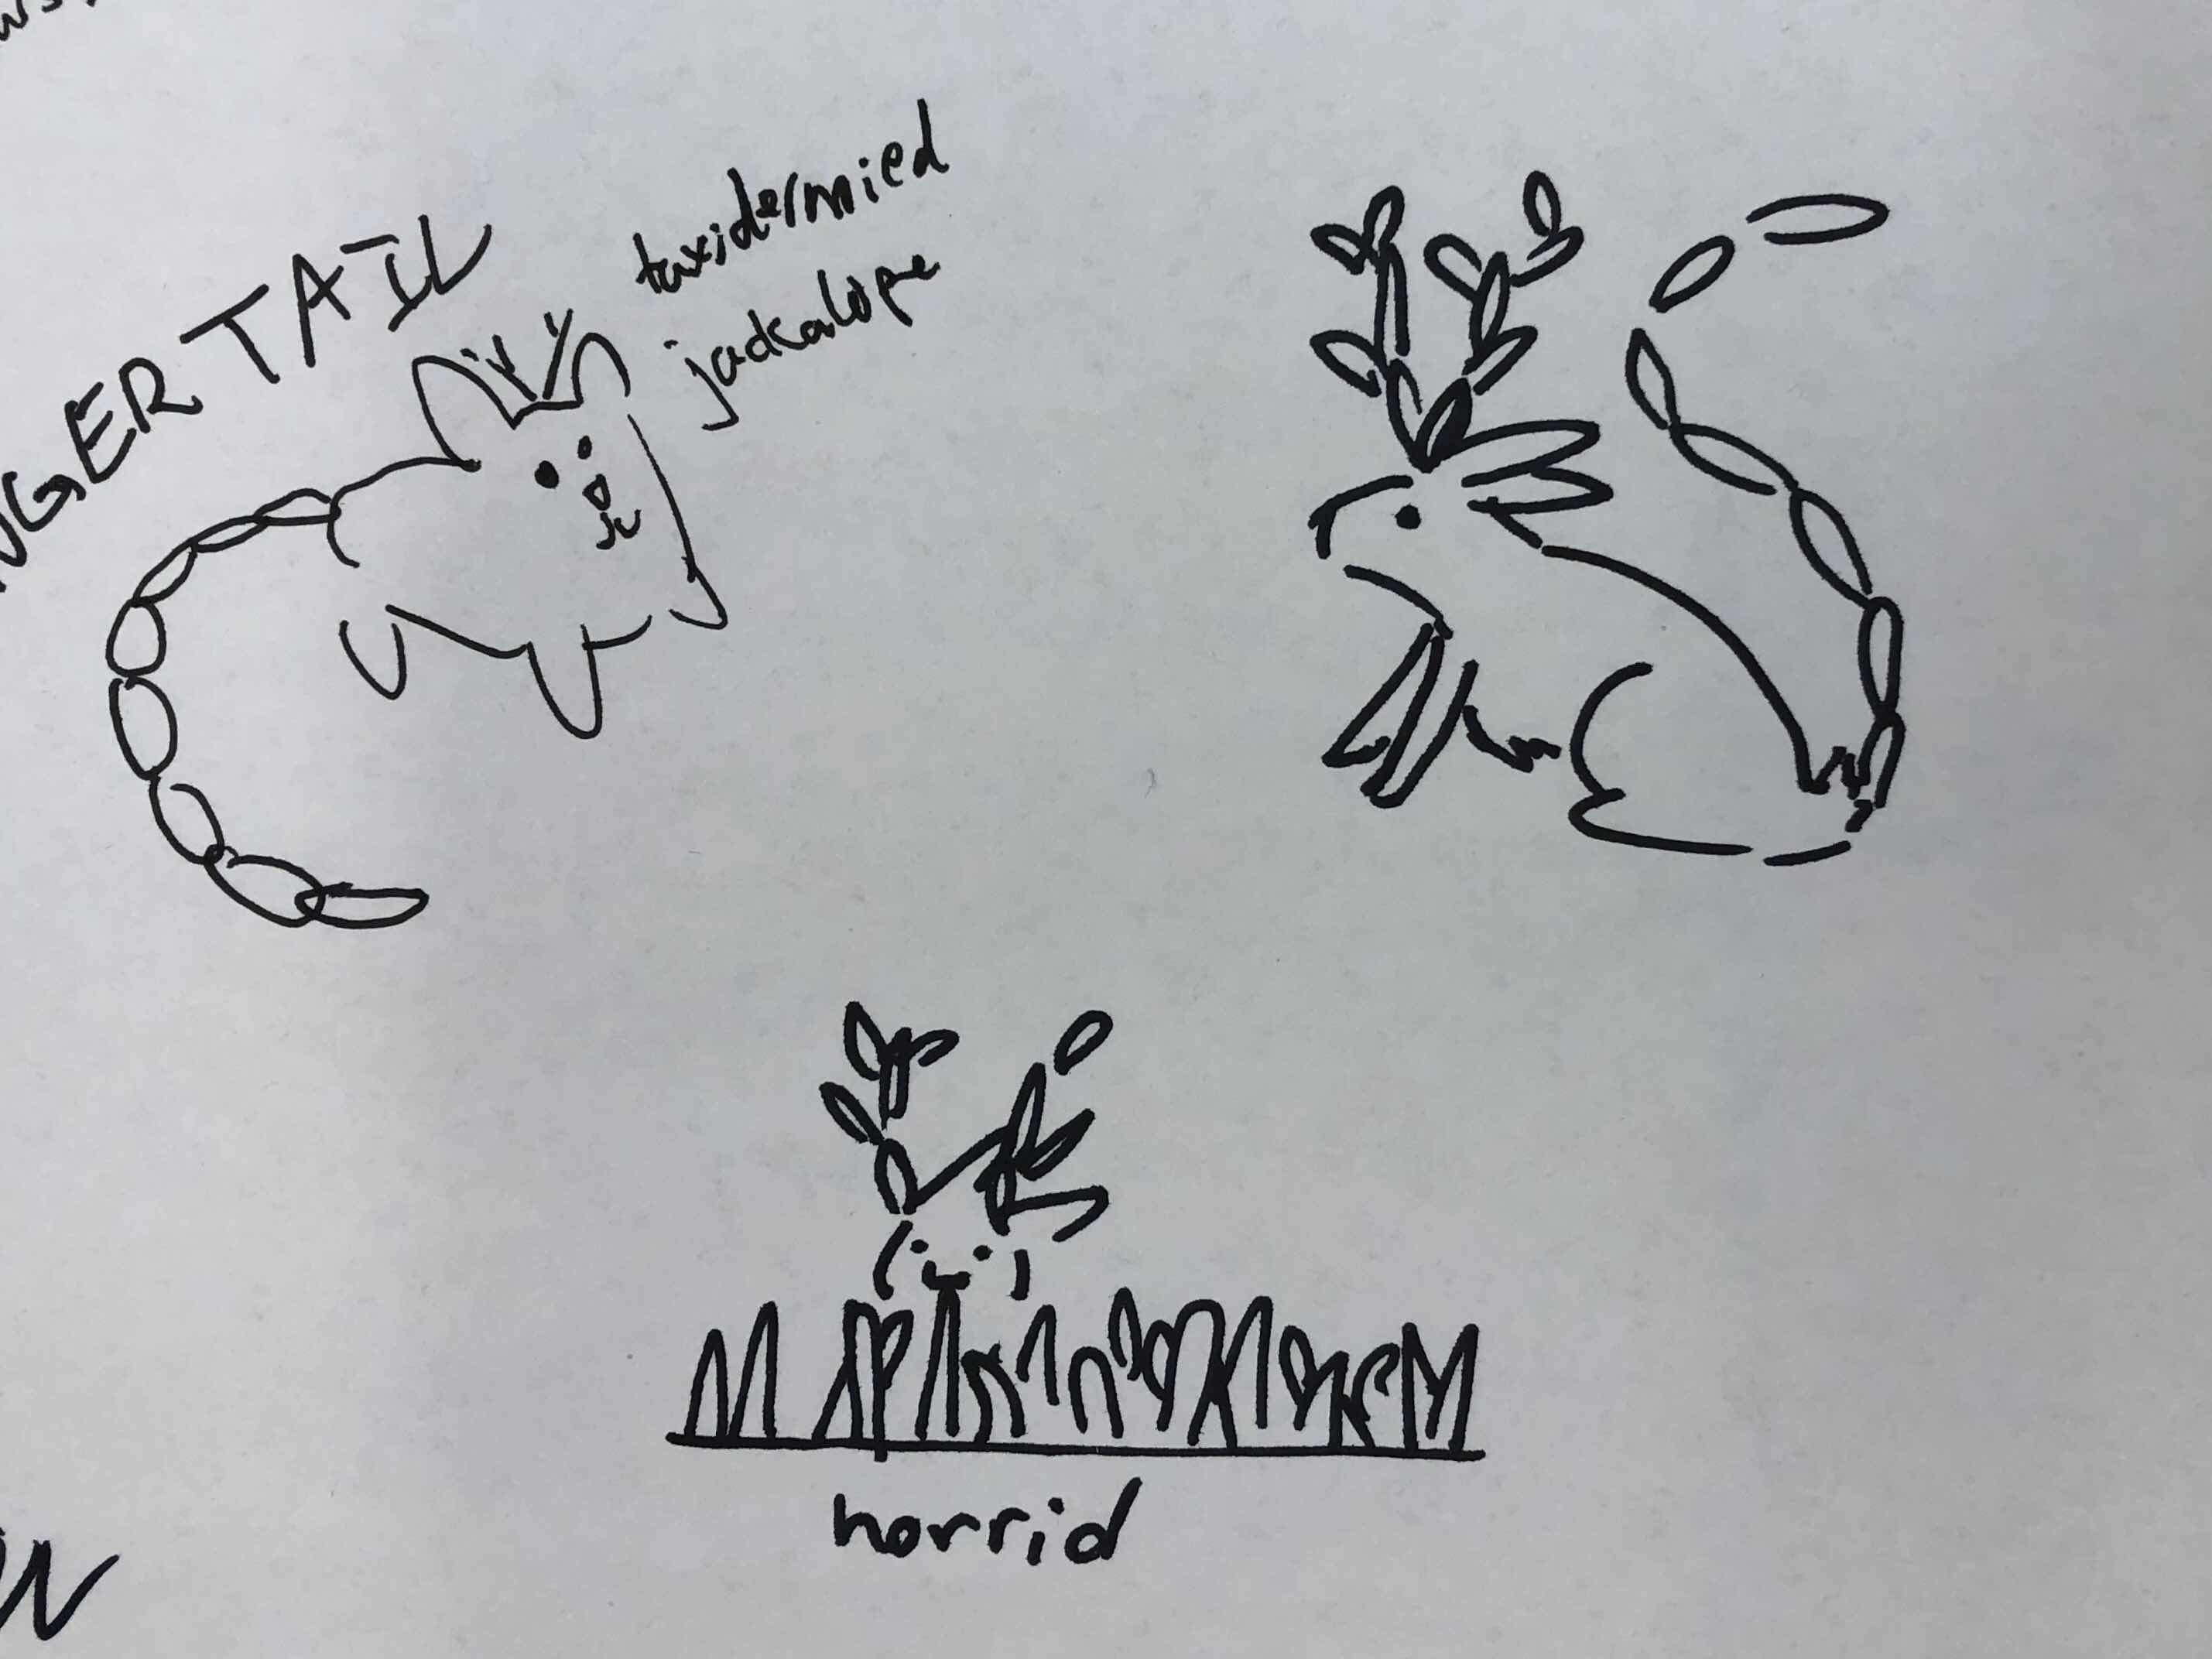 TAIL
taxidermied
jackalope
horrid